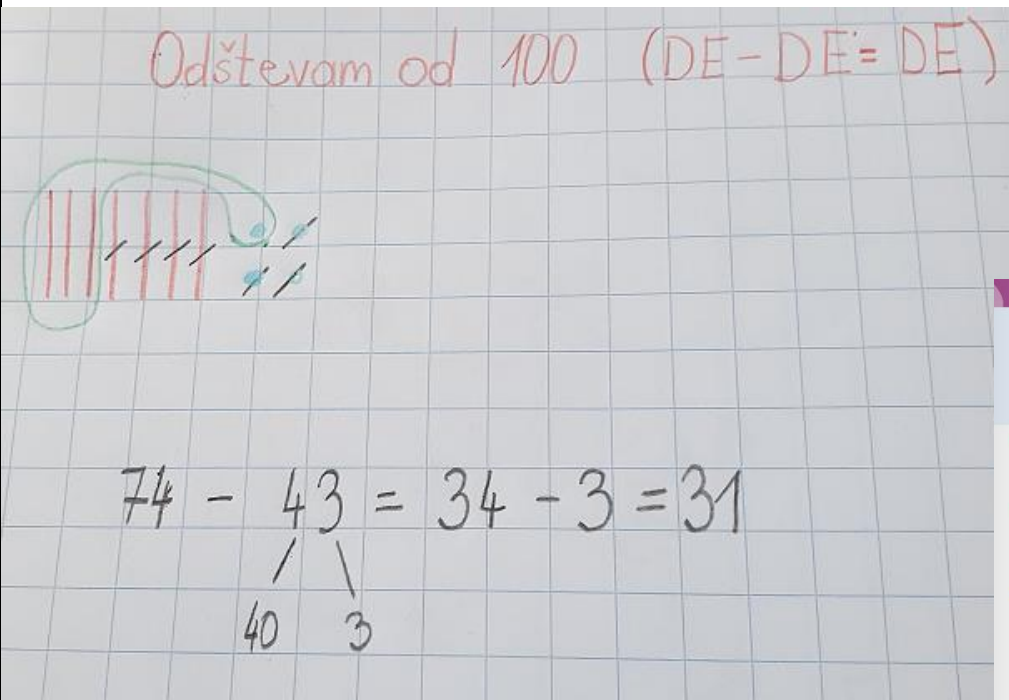 Odštevam od 100 (DE - DE = DE)
74 - 43 = 34 - 3 = 31
40 3